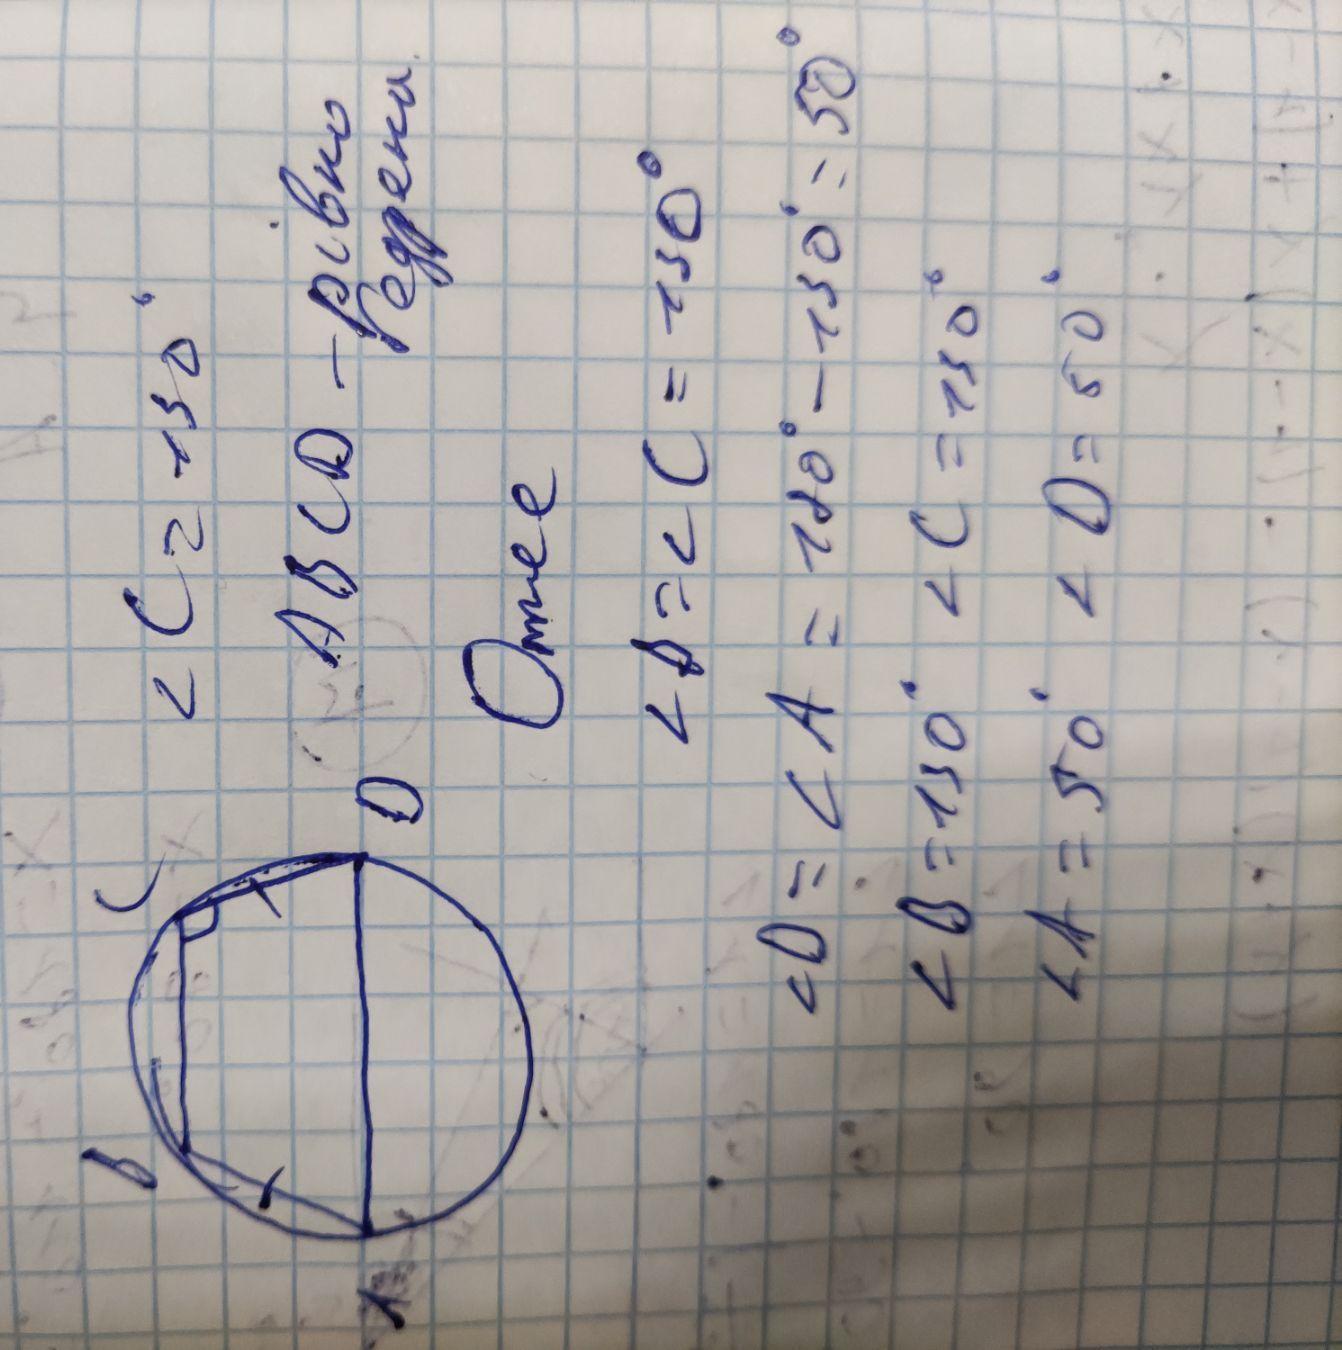 B C
A D
< C = 130°
ABCD - рівно
бедрена.
Отже
< B = < C = 130°
< D = < A = 180° - 130° = 50°
< B = 130° < C = 130°
< A = 50° < D = 50°